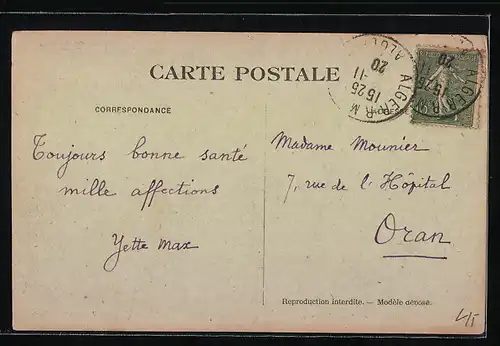 CARTE POSTALE
CORRESPONDANCE
Toujours bonne santé
mille affections
Yette Max
Madame Mounier
7, rue de l'Hôpital
Oran
Reproduction interdite. — Modèle déposé.
ALGER R M
15 25
-11
20
ALGER
15 25
20